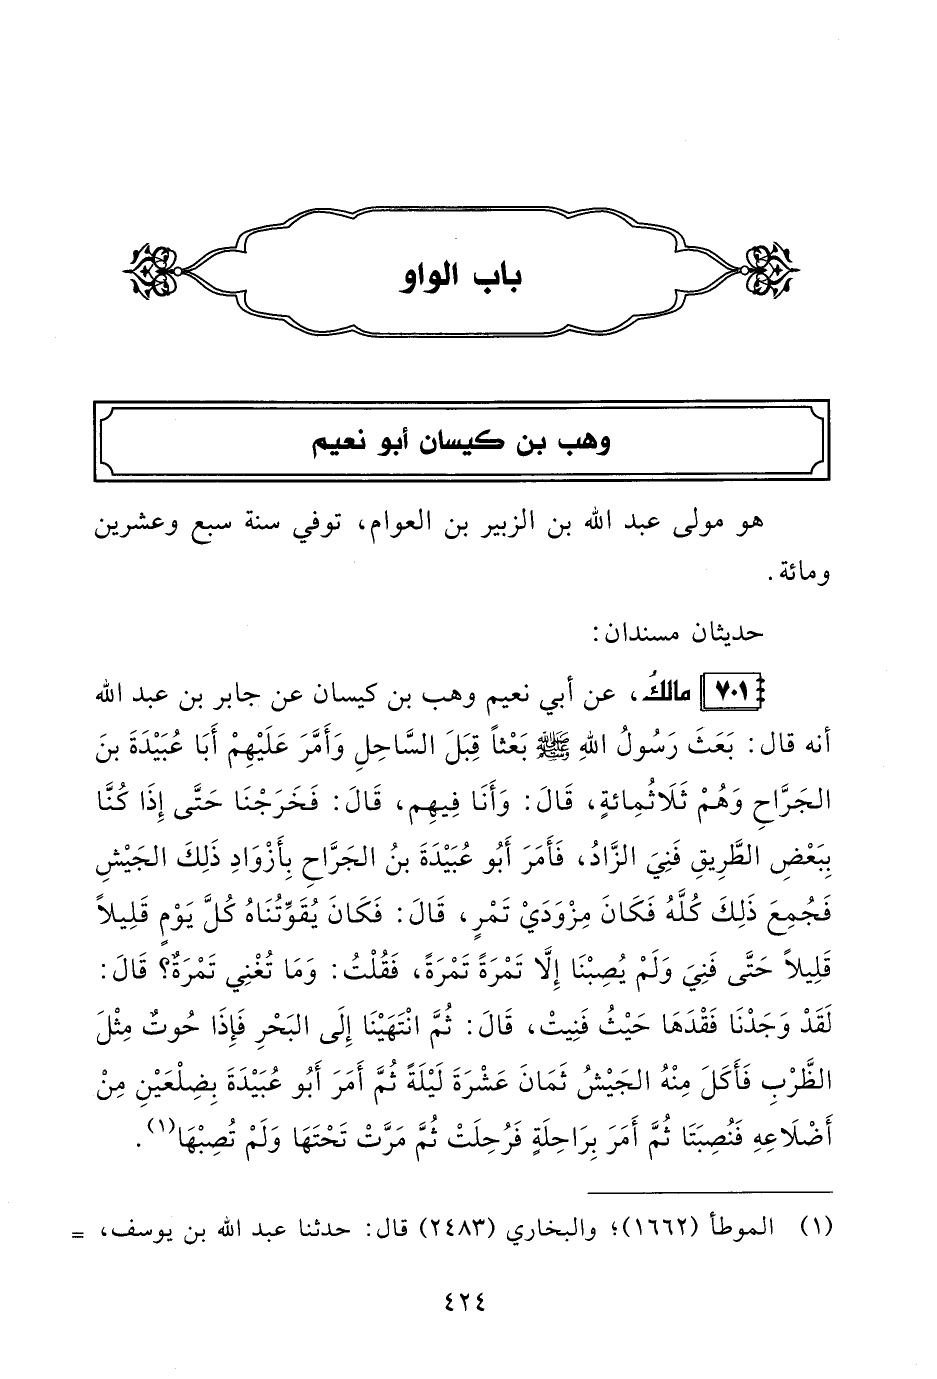 باب الواو
وهب بن كيسان أبو نعيم
هو مولى عبد الله بن الزبير بن العوام، توفي سنة سبع وعشرين
ومائة.
حديثان مسندان:
٧٠١ مالكُ، عن أبي نعيم وهب بن كيسان عن جابر بن عبد الله
أنه قال: بَعَثَ رَسُولُ اللهِ ﷺ بَعْثاً قِبَلَ السَّاحِلِ وَأَمَّرَ عَلَيْهِمْ أَبَا عُبَيْدَةَ بنَ
الجَرَّاحِ وَهُمْ ثَلَاثُمِائةٍ، قَالَ: وَأَنَا فِيهِم، قَالَ: فَخَرَجْنَا حَتَّى إِذَا كُنَّا
بِبَعْضِ الطَّرِيقِ فَنِيَ الزَّادُ، فَأَمَرَ أَبُو عُبَيْدَةَ بنُ الجَرَّاحِ بِأَزْوَادِ ذَلِكَ الجَيْشِ
فَجُمِعَ ذَلِكَ كُلَّهُ فَكَانَ مِزْوَدَيْ تَمْرٍ، قَالَ: فَكَانَ يُقَوِّتُنَاهُ كُلَّ يَوْمٍ قَلِيلاً
قَلِيلاً حَتَّى فَنِيَ وَلَمْ يُصِبْنَا إِلَّا تَمْرَةً تَمْرَةً، فَقُلْتُ: وَمَا تُغْنِي تَمْرَةٌ؟ قَالَ:
لَقَدْ وَجَدْنَا فَقْدَهَا حَيْثُ فَنِيتْ، قَالَ: ثُمَّ انْتَهَيْنَا إِلَى البَحْرِ فَإِذَا حُوتٌ مِثْلَ
الظَّرْبِ فَأَكَلَ مِنْهُ الجَيْشُ ثَمَانَ عَشْرَةَ لَيْلَةً ثُمَّ أَمَرَ أَبُو عُبَيْدَةَ بِضِلْعَيْنِ مِنْ
أَضْلَاعِهِ فَنُصِبَتَا ثُمَّ أَمَرَ بِرَاحِلَةٍ فَرُحِلَتْ ثُمَّ مَرَّتْ تَحْتَهَا وَلَمْ تُصِبْهَا(١).
(١) الموطأ (١٦٦٢)؛ والبخاري (٢٤٨٣) قال: حدثنا عبد الله بن يوسف، =
٤٢٤